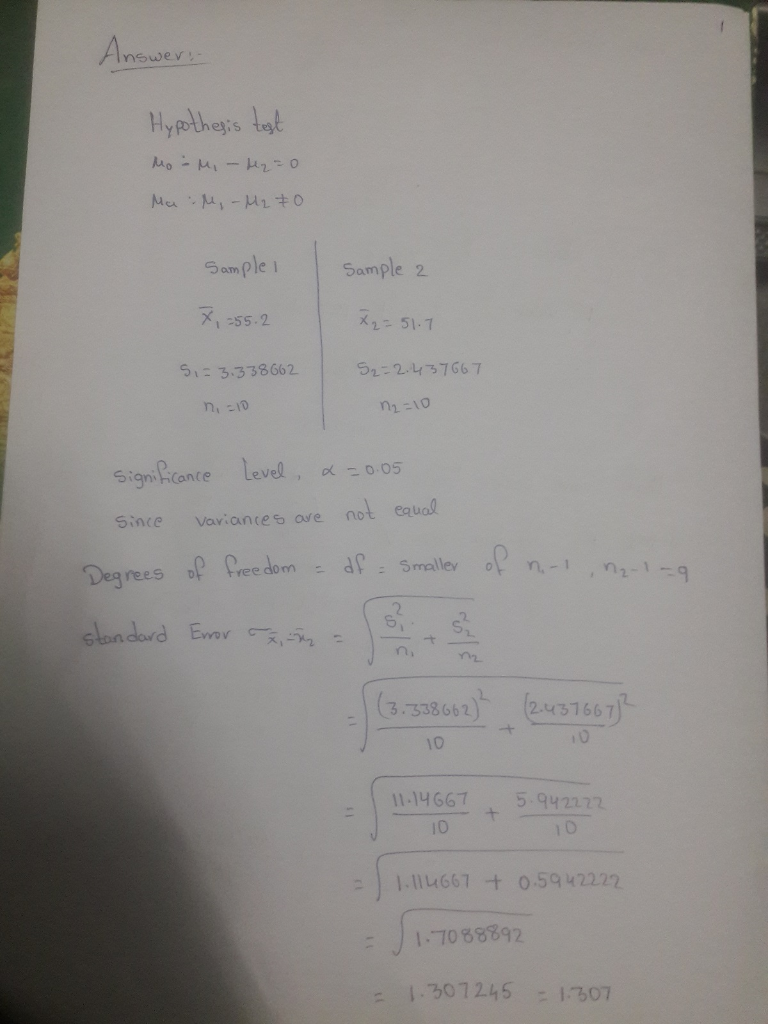 1
Answer:-
Hypothesis test
μ0 : μ1 - μ2 = 0
μa : μ1 - μ2 ≠ 0
Sample 1 | Sample 2
x̄1 = 55.2 | x̄2 = 51.7
S1 = 3.338662 | S2 = 2.437667
n1 = 10 | n2 = 10
Significance Level, α = 0.05
Since variances are not equal
Degrees of freedom = df = smaller of n1-1, n2-1 = 9
standard Error σx̄1-x̄2 = √(S1²/n1 + S2²/n2)
= √((3.338662)²/10 + (2.437667)²/10)
= √(11.14667/10 + 5.942222/10)
= √(1.114667 + 0.5942222)
= √1.7088892
= 1.307245 = 1.307